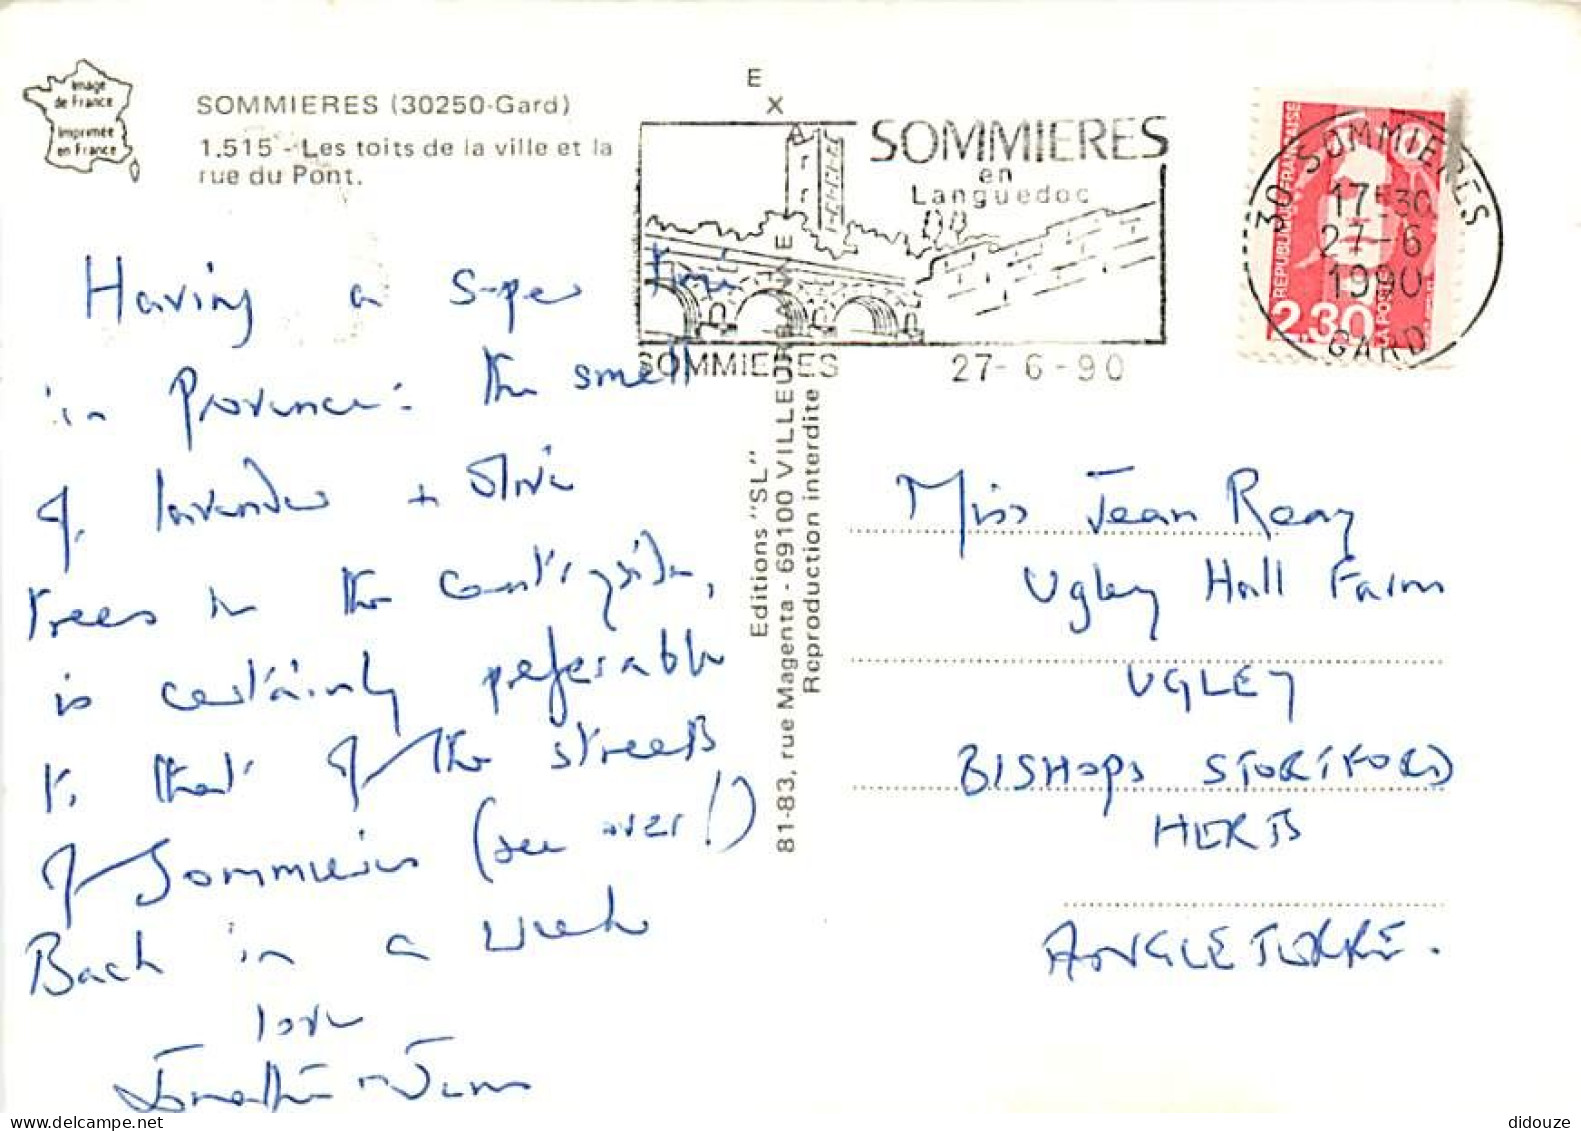 Image
de France
Imprimée
en France
SOMMIERES (30250-Gard)
1.515 - Les toits de la ville et la
rue du Pont.
E
X
SOMMIERES
en
Languedoc
SOMMIERES
27-6-90
30 SOMMIERES
17H30
27-6
1990
GARD
REPUBLIQUE FRANÇAISE
2,30
LA POSTE
Having a super time
in Provence: the smell
of lavender + olive
trees in the countryside,
is certainly preferable
to that of the streets
of Sommieres (see over!)
Back in a week
love
Editions "SL"
81-83, rue Magenta - 69100 VILLEURBANNE
Reproduction interdite
Miss Jean Reay
Ugley Hall Farm
UGLEY
BISHOPS STORTFORD
HERTS
ANGLETERRE.
didouze